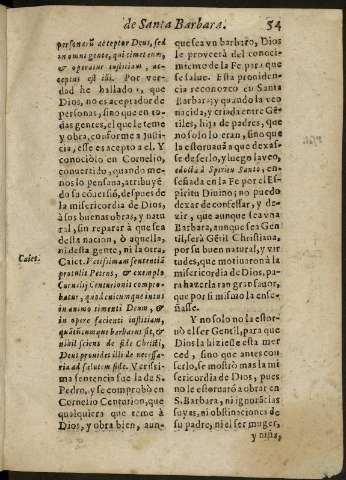 de Santa Barbara. 54
personarũ acceptor Deus, sed
in omni gente, qui timet eum,
& operatur iustitiam, ac-
ceptus est illi. Por ver-
dad he hallado, que
Dios, no es aceptador de
personas, sino que en to-
das gentes, el que le teme
y obra, conforme a justi-
cia, esse es acepto a el. Y
conociòlo en Cornelio,
conuertido, quando me-
nos lo pensaua, atribuyẽ-
do su cõuersiõ, despues de
la misericordia de Dios,
à sus buenas obras, y natu
ral, sin reparar à que sea
desta nacion, ò aquella,
ni desta gente, ni la otra.
Caiet.
Caiet. Verissimam sententiã
protulit Petrus, & exemplo
Cornelij Centurionis compro-
batur, quod cuicumque intus
in animo timenti Deum, &
in opere facienti iustitiam,
quãtũcumque barbarus sit, &
nihil sciens de fide Christi,
Deus prouidet illi de necessa-
ria ad salutem fide. Verissi-
ma sentencia fue la de S.
Pedro, y se comprobò en
Cornelio Centurion, que
qualquiera que teme à
Dios, y obra bien, aun-
que sea vn barbaro, Dios
le proveerà del conoci-
miento de la Fe, para que
se salue. Esta prouiden-
cia reconozco en Santa
Barbara; y quando la veo
nacida, y criada entre Gẽ-
tiles, hija de padres, que
no solo lo eran, sino que
la estoruauã a que dexas-
se de serlo, y luego la veo,
edocta à Spiritu Sancto, en-
señada en la Fe por el Es-
piritu Diuino; no puedo
dexar de confessar, y de-
zir, que aunque sea vna
Barbara, aunque sea Gen
til, serà Gẽtil Christiana,
por su buen natural, y vir
tudes, que motiuaron à la
misericordia de Dios, pa-
ra hazerla tan grande,
que por si mismo la ense-
ñasse.
Y no solo no la estor-
uò el ser Gentil, para que
Dios la hiziesse esta mer
ced, sino que antes con-
serlo, se mostrò mas la mi
sericordia de Dios, pues
no le estoruarõ a obrar en
S. Barbara, ni ignorãcias
suyas, ni obstinaciones de
su padre, ni el ser muger,
y niña,